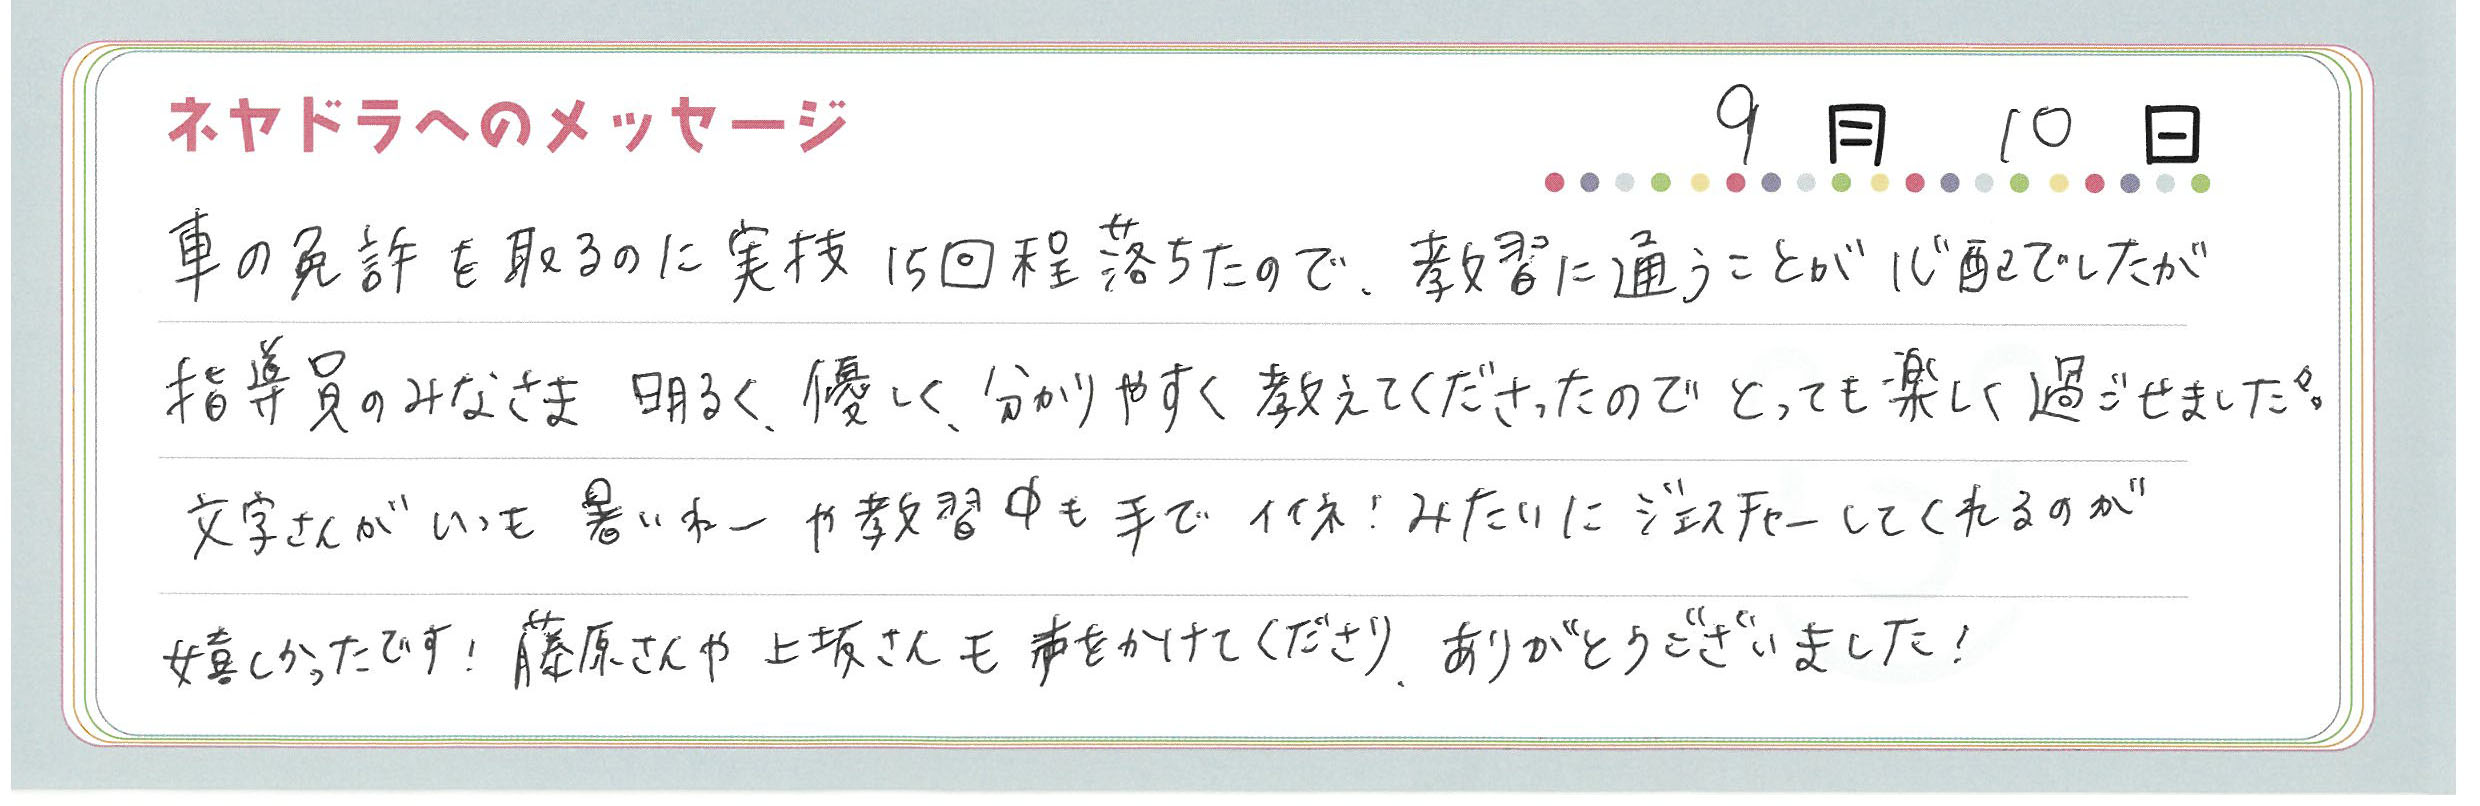 ネヤドラへのメッセージ
9月 10日
車の免許を取るのに実技15回程落ちたので、教習に通うことが心配でしたが
指導員のみなさま 明るく、優しく、分かりやすく教えてくださったのでとっても楽しく過ごせました。
文字さんがいつも暑いねーや教習中も手でイイネ！みたいにジェスチャーしてくれるのが
嬉しかったです！藤原さんや上坂さんも声をかけてくださり、ありがとうございました！